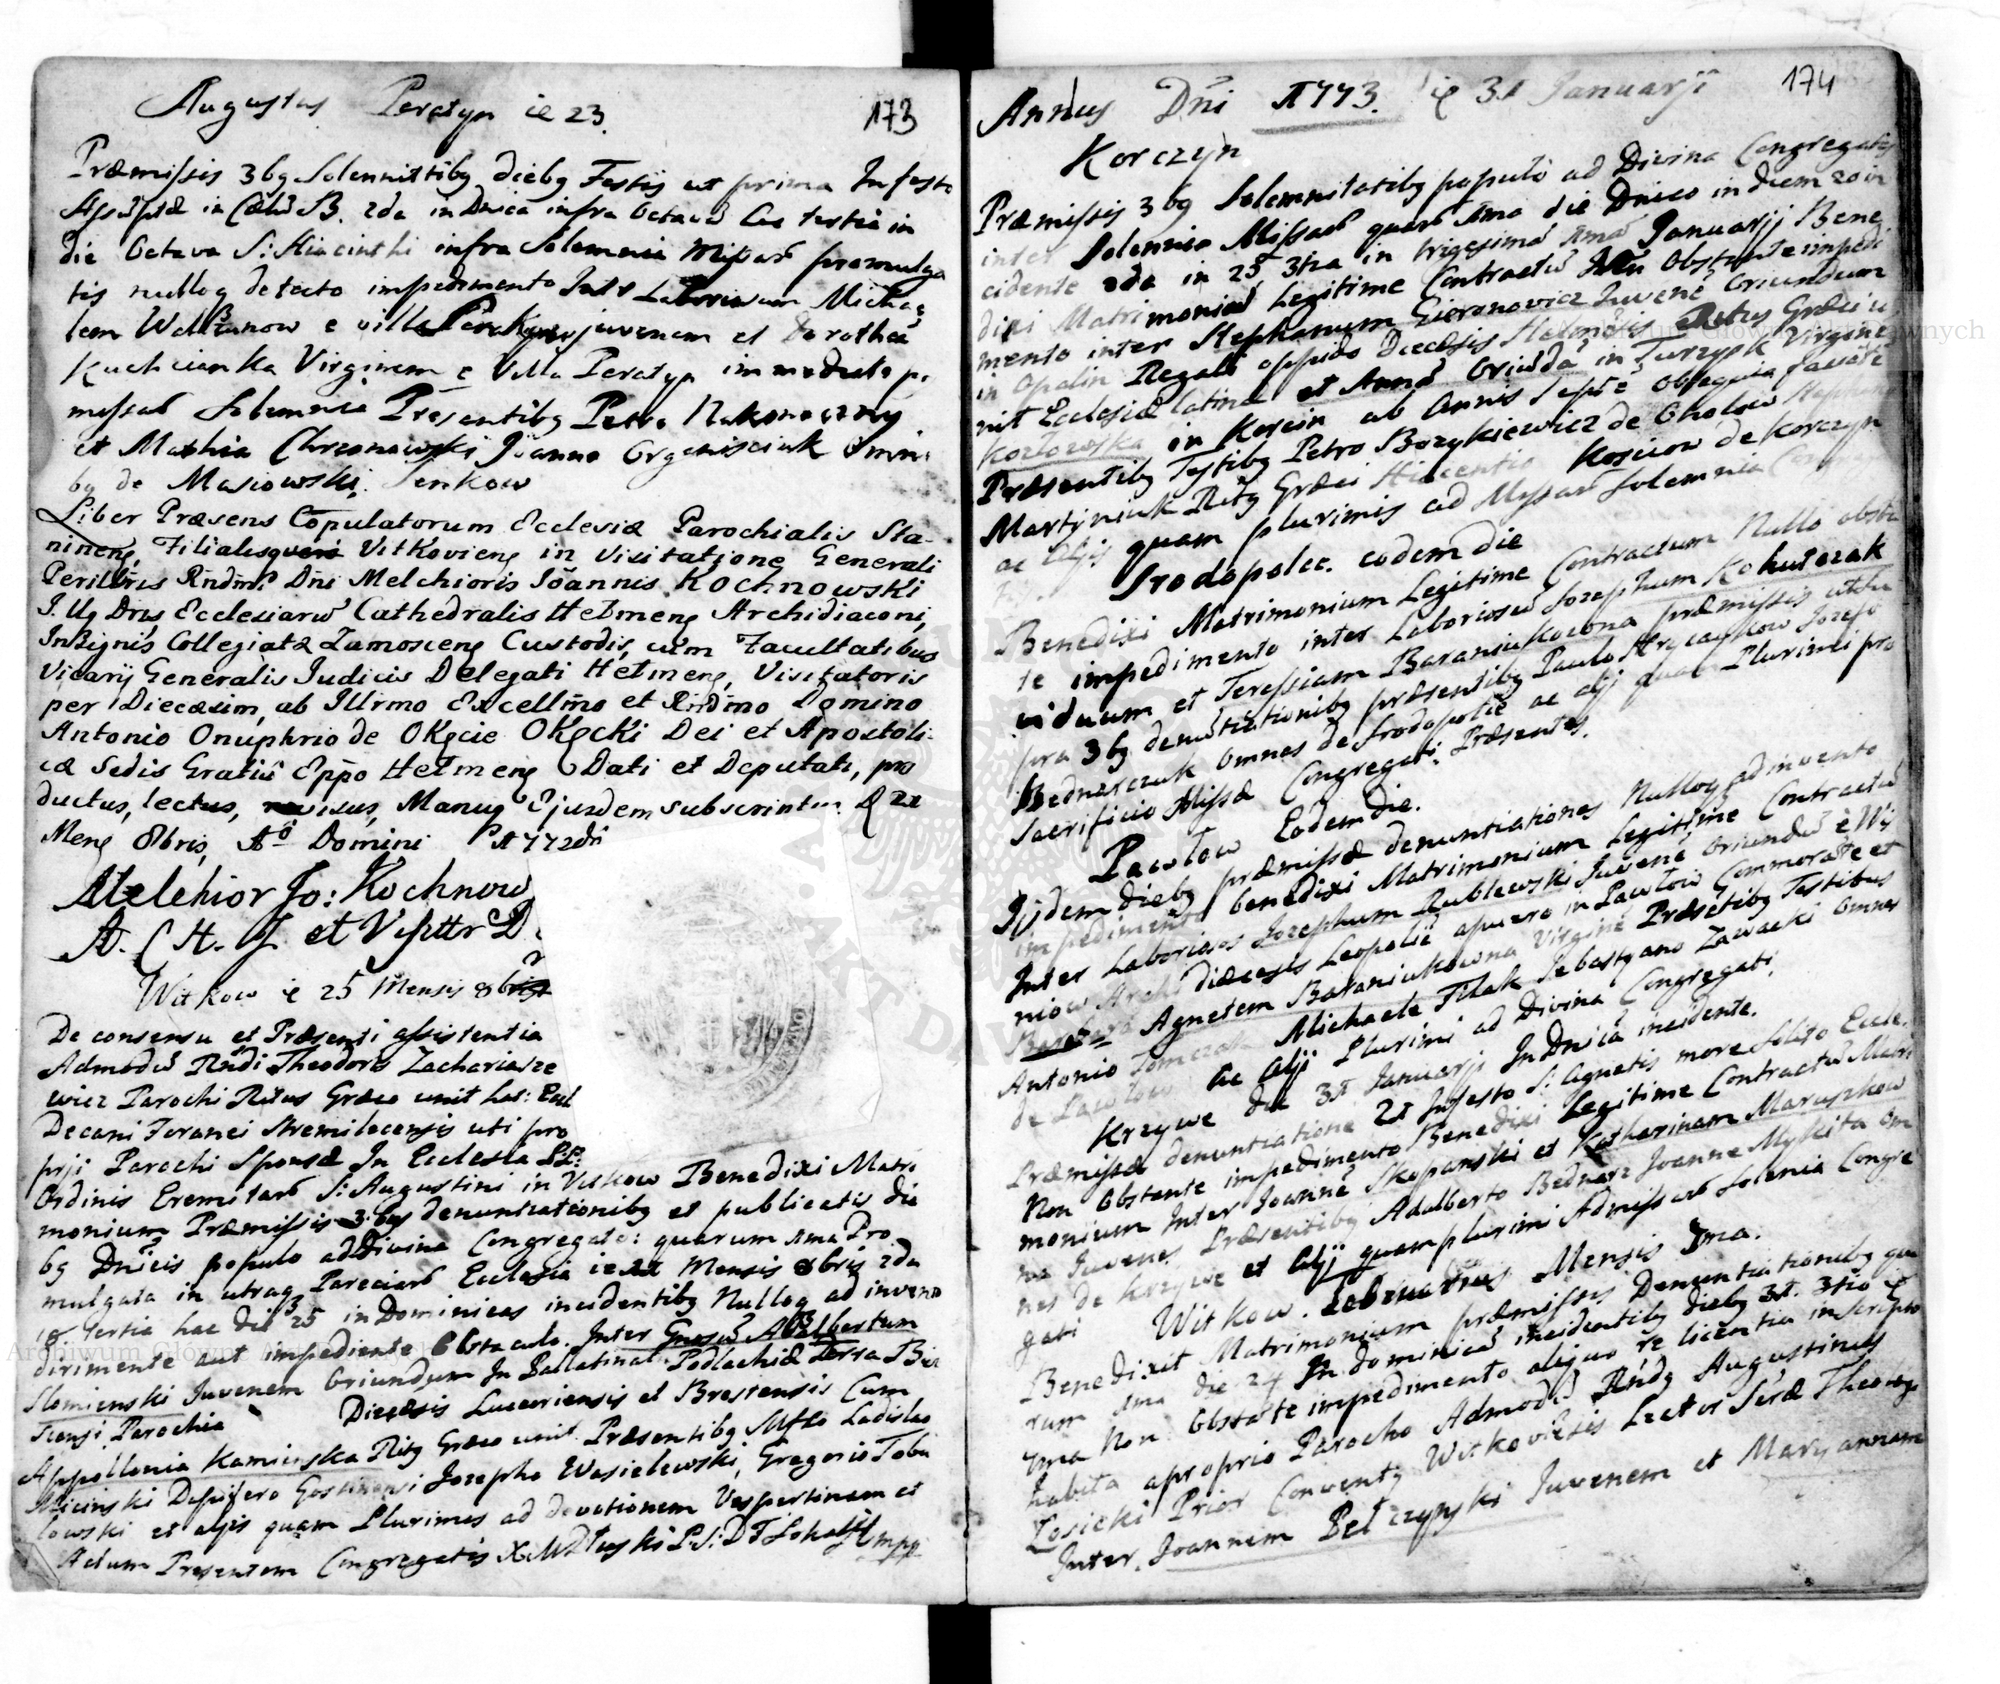 Augustus Peratyn ie 23.
173
Præmissis 3bg Solennittibg diebg Festis ut prima In festo
Assũptæ in Cœlũ B. 2da in Dnica infra Octavã tertia in
die Octava S: Hiacinthi infra Solemnia Missarũ promulga
tis nulloq detecto impedimento Inter Laboriosum Michae
lem e villa juvenem et Dorotheã
Kuchcianka Virginem e Villa Peratyn immediate p
missarũ Solemnia Presentibg Petro Nakoneczny
et Mathia Chrzonowski Joanne Organisciuk omni
bg de Masiowski Senkow
Liber Præsens Copulatorum Ecclesiæ Parochialis Sta-
nineng, Filialisque Vitkovieng in Visitatione Generali
Perillris Rndmi Dni Melchioris Joannis Kochnowski
J. Ug Dris Ecclesiarũ Cathedralis Hełmeng Archidiaconi,
Insignis Collegiatæ Zamosceng Custodis, cum Facultatibus
Vicarij Generalis Judicis Delegati Hełmeng, Visitatoris
per Diecæsim, ab Illrmo Excellmo et Rndmo Domino
Antonio Onuphrio de Okęcie Okęcki Dei et Apostoli-
cæ Sedis Gratia Eppo Hełmeng Dati et Deputati, pro
ductus, lectus, revisus, Manuq Ejusdem subscriptus
Meng 8bris, Ao Domini 1772di
Melchior Jo: Kochnow
A. C H. J. et Visittr D.
Witkow ie 25 Mensis 8bris
De consensu et Præsenti assistentia
Admodũ Rndi Theodori Zachariasze
wicz Parochi Ritus Græco unit hat: Eccl
Decani Foranei Stremilecensis uti pro
prij Parochi Sponsæ In Ecclesia PP:
Ordinis Eremitarũ S: Augustini in Vitkow Benedixi Matri
monium Præmissis 3bus denuntiationibg et publicatis die
bg Dnicis populo ad Divina Congregato: quarum 1ma Pro
mulgata in utraq Pareciarũ Ecclesia ie Mensis 8bris 2da
18. Tertia hac die 25 in Dominicas incidentibg Nulloq ad invento
dirimente aut impediente Obstaculo. Inter Gnosũ Adalbertum
Slomienski Juvenem Oriundum In Pallatinatu Podlachiæ Terra Biel
scensi Parochia Diecæsis Lucceriensis et Brestensis Cum
Appollonia Kaminska Ritg Græco unit. Præsentibg Mfco Ladislao
Miciński Depifero Josepho Wasielewski, Gregorio
lowski et alijs quam Plurimis ad devotionem Vespertinam et
Actum Presentem Congregatis
174
Annus Dñi 1773. ie 31 Januarij
Korczyn
Præmissis 3bg Solemnitatibg populo ad Divina Congregato
inter Solennia Missarũ quarũ 1ma die Dnico in diem 20 in
cidente 2da in 25 3tia in trigesimã 1mã Januarij Bene
dixi Matrimoniũ Legitime Contractũ Nullo Obstante impedi
mento inter Stephanum Gieronowicz Juvenẽ Oriundum
in Opalin Regali oppido Diecæsis Helmẽsis Ritus Græci u
nit Ecclesiæ latinæ et Annã Oriũdã in Turzysk Virginẽ
Kozłowska in Korcin ab Annis Septẽ obsequia faciẽte
Præsentibg Testibg Petro Bozykiewicz de Chołow
Martyniuk Ritg Græci Hiacentio Kosciow de Korczyn
ac alijs quam plurimis ad Missarũ Solemnia
Srodopolec. eodem die
Benedixi Matrimonium Legitime Contractum Nullo obstã
te impedimento inter Laboriosũ Josephum Kohutczak
viduum et Teressiam Baraniukowna præmissis ut su
pra 3bg denũtiationibg præsentibg Paulo Hrycaykow Jozefo
Bednarczuk Omnes de Srodopolcie ac alij quam Plurimi pro
Sacrificio Missæ Congregati Præsentes.
Pawłow Eodem die.
Ijsdem diebg præmissæ denuntiationes Nulloq adinvento
impedimento benedixi Matrimonium Legitime Contractũ
Inter Laboriosos Josephum Rublewski Juvenẽ Oriundũ e Wy
niow Archidiæcesis Leopolie a puero in Pawłow Commorãte et
Agnetem Baraniukowna Virginẽ Præsẽtibg Testibus
Antonio Tomczak Michaele Filak Sebastyano Zawacki Omnes
de Pawłow ac Alij Plurimi ad Divina Congregati.
Krzywe die 31 Januarij In Dnicã incidente.
Præmissæ denuntiatione 21 In festo S: Agnetis more Solito Eccle.
Non Obstante impedimento Benedixi Legitime Contractũ Matri
monium Inter Joannẽ Skopanski et Katharinam Maruszkow
na Juvenes Præsentibg Adalberto Bednarz Joanne Mykita om
nes de Krzywe et Alij quam plurimi Ad missarũ Solenia Congre
gati
Witkow. Februarius Mensis 7ma.
Benedixit Matrimonium præmissis Denuntiationibg qua
rum 1ma die 24 In dominicã incidentibg diebg 31. 3tio
7ma Non Obstãte impedimento aliquo ĩe licentia in Scripto
habita a proprio Parocho Admodũ Rndg Augustinus
Łosicki Prior Conventg Witkoviẽsis Lector Scræ Theolog
Inter Joannem Pełczynski Juvenem et Maryannam